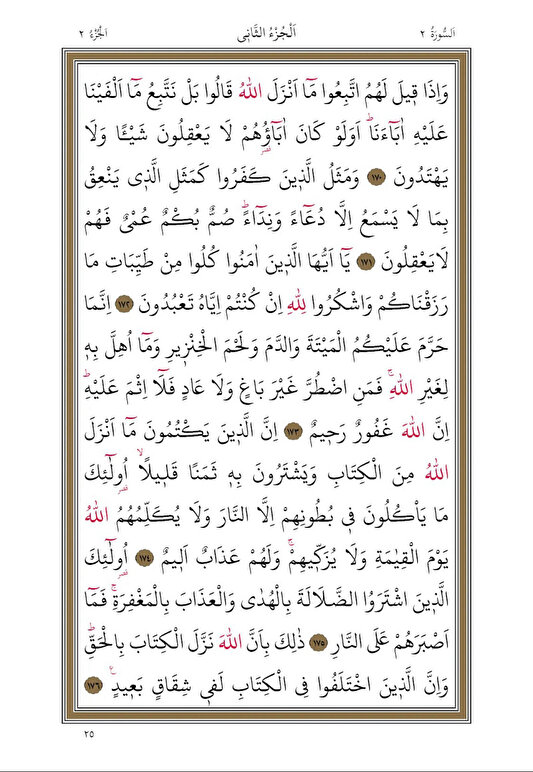 اَلسُّورَةُ ٢ اَلْجُزْءُ الثَّانِى اَلْجُزْءُ ٢
وَاِذَا ق۪يلَ لَهُمُ اتَّبِعُوا مَٓا اَنْزَلَ اللّٰهُ قَالُوا بَلْ نَتَّبِعُ مَٓا اَلْفَيْنَا
عَلَيْهِ اٰبَٓاءَنَاۜ اَوَلَوْ كَانَ اٰبَٓاؤُ۬هُمْ لَا يَعْقِلُونَ شَيْـًٔا وَلَا
يَهْتَدُونَ ﴿١٧٠﴾ وَمَثَلُ الَّذ۪ينَ كَفَرُوا كَمَثَلِ الَّذ۪ى يَنْعِقُ
بِمَا لَا يَسْمَعُ اِلَّا دُعَٓاءً وَنِدَٓاءًۜ صُمٌّ بُكْمٌ عُمْىٌ فَهُمْ
لَايَعْقِلُونَ ﴿١٧١﴾ يَٓا اَيُّهَا الَّذ۪ينَ اٰمَنُوا كُلُوا مِنْ طَيِّبَاتِ مَا
رَزَقْنَاكُمْ وَاشْكُرُوا لِلّٰهِ اِنْ كُنْتُمْ اِيَّاهُ تَعْبُدُونَ ﴿١٧٢﴾ اِنَّمَا
حَرَّمَ عَلَيْكُمُ الْمَيْتَةَ وَالدَّمَ وَلَحْمَ الْخِنْز۪يرِ وَمَٓا اُهِلَّ بِه۪
لِغَيْرِ اللّٰهِۚ فَمَنِ اضْطُرَّ غَيْرَ بَاغٍ وَلَا عَادٍ فَلَٓا اِثْمَ عَلَيْهِۜ
اِنَّ اللّٰهَ غَفُورٌ رَح۪يمٌ ﴿١٧٣﴾ اِنَّ الَّذ۪ينَ يَكْتُمُونَ مَٓا اَنْزَلَ
اللّٰهُ مِنَ الْكِتَابِ وَيَشْتَرُونَ بِه۪ ثَمَنًا قَل۪يلًاۙ اُو۬لٰٓئِكَ
مَا يَأْكُلُونَ ف۪ى بُطُونِهِمْ اِلَّا النَّارَ وَلَا يُكَلِّمُهُمُ اللّٰهُ
يَوْمَ الْقِيٰمَةِ وَلَا يُزَكّ۪يهِمْۚ وَلَهُمْ عَذَابٌ اَل۪يمٌ ﴿١٧٤﴾ اُو۬لٰٓئِكَ
الَّذ۪ينَ اشْتَرَوُا الضَّلَالَةَ بِالْهُدٰى وَالْعَذَابَ بِالْمَغْفِرَةِۚ فَمَٓا
اَصْبَرَهُمْ عَلَى النَّارِ ﴿١٧٥﴾ ذٰلِكَ بِاَنَّ اللّٰهَ نَزَّلَ الْكِتَابَ بِالْحَقِّۜ
وَاِنَّ الَّذ۪ينَ اخْتَلَفُوا فِى الْكِتَابِ لَف۪ى شِقَاقٍ بَع۪يدٍۚ ﴿١٧٦﴾
٢٥